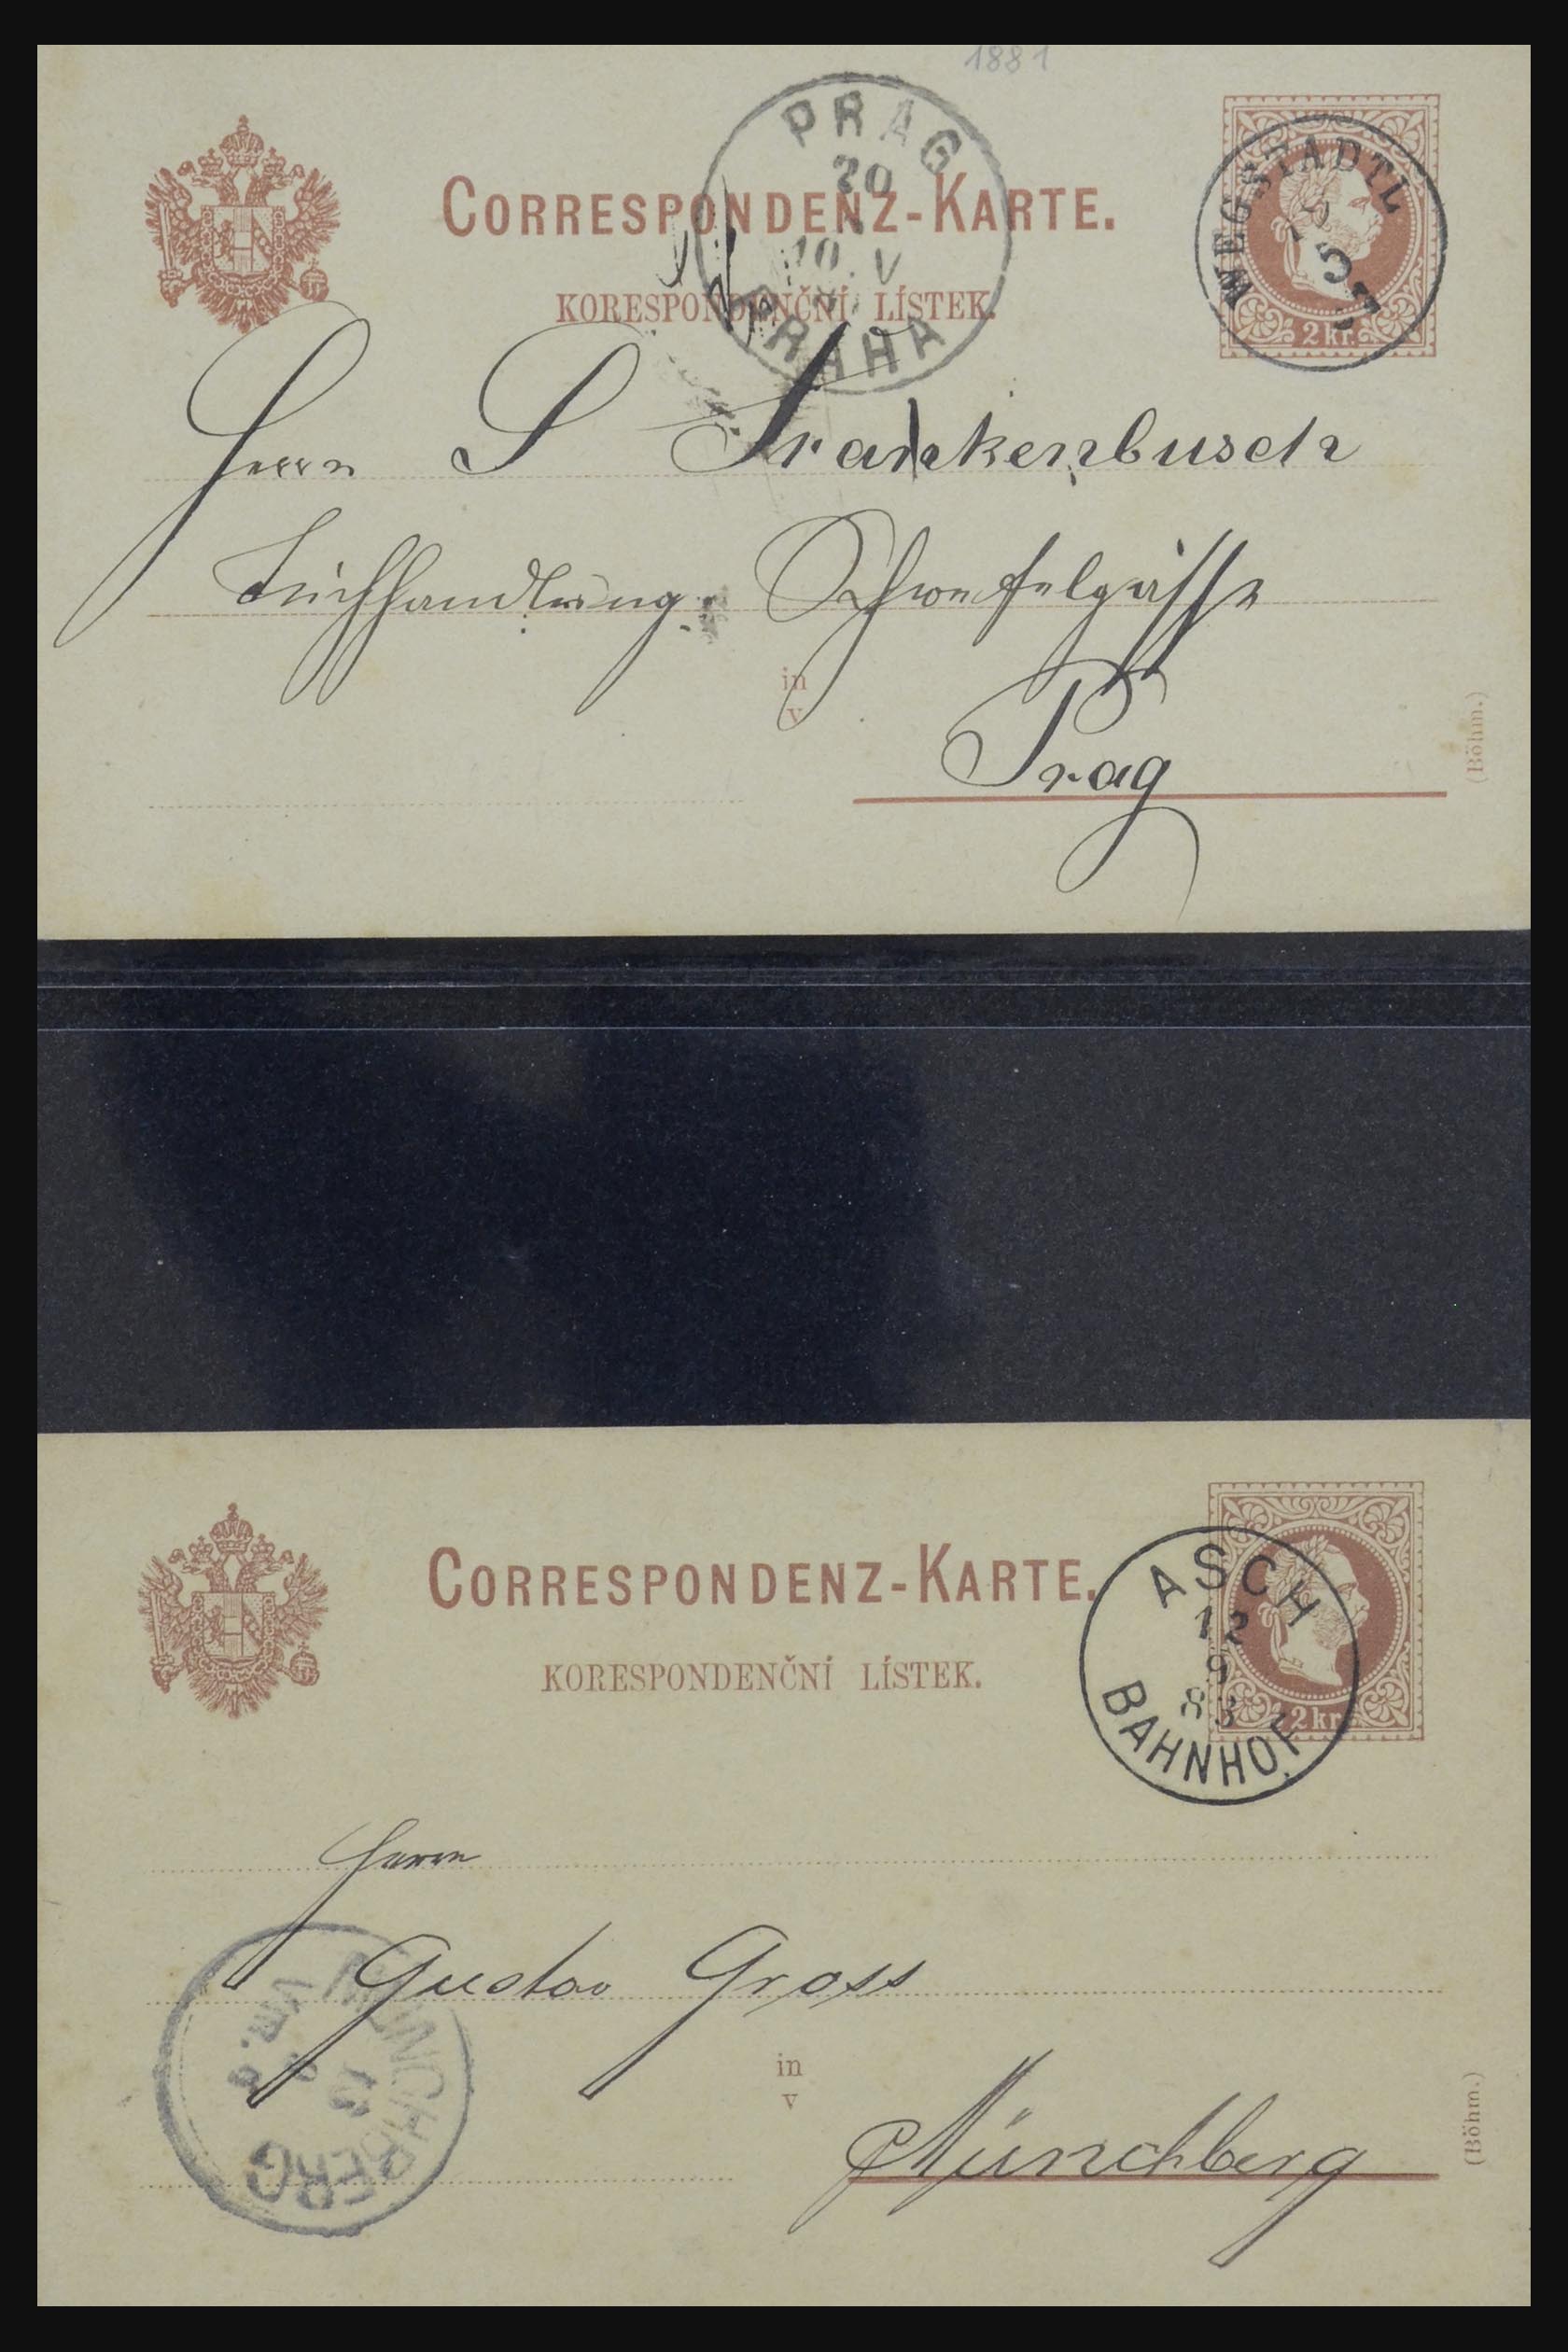 1881
PRAG
20
10. V
PRAHA
CORRESPONDENZ-KARTE.
KORESPONDENČNÍ LÍSTEK.
WEGSTADTL
2 kr.
Herrn S Frankenbusch
Tuchhandlung Schwefelgasse
in
v
Prag
(Böhm.)
CORRESPONDENZ-KARTE.
KORESPONDENČNÍ LÍSTEK.
ASCH
12
9
83
BAHNHOF.
2 kr.
Herrn
Gustav Gross
in
v
Münchberg
(Böhm.)
MÜNCHBERG